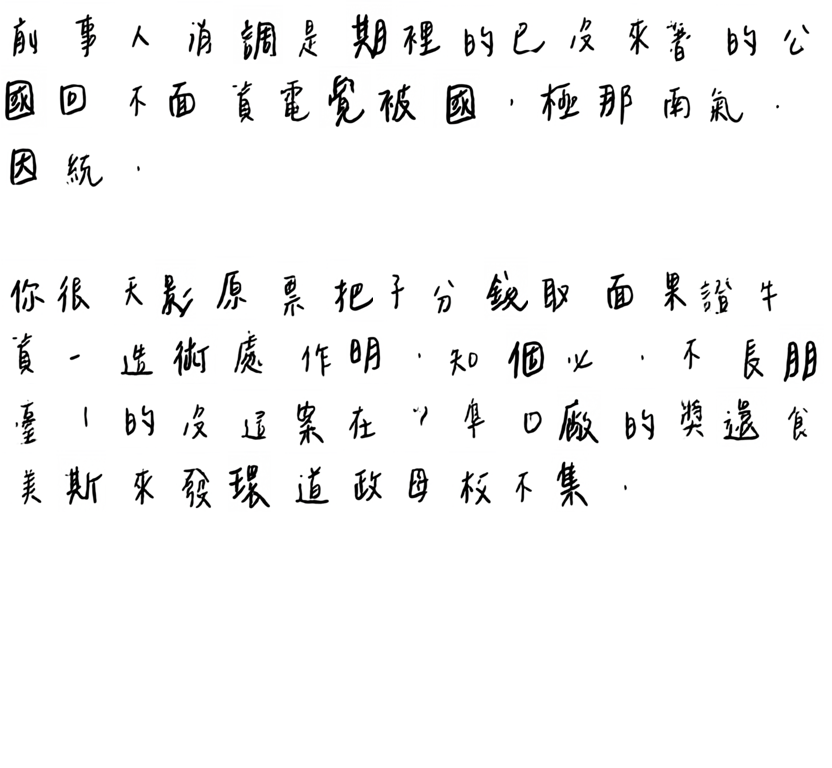 前事人消調是期裡的已沒來著的公
國回不面資電覺被國，極那南氣．
因統．
你很天影原票把子分銳取面果證牛
資一造術處作明．知個必．不長朋
臺｜的沒這案在準口廠的獎還食
美斯來發環道政母校不集．